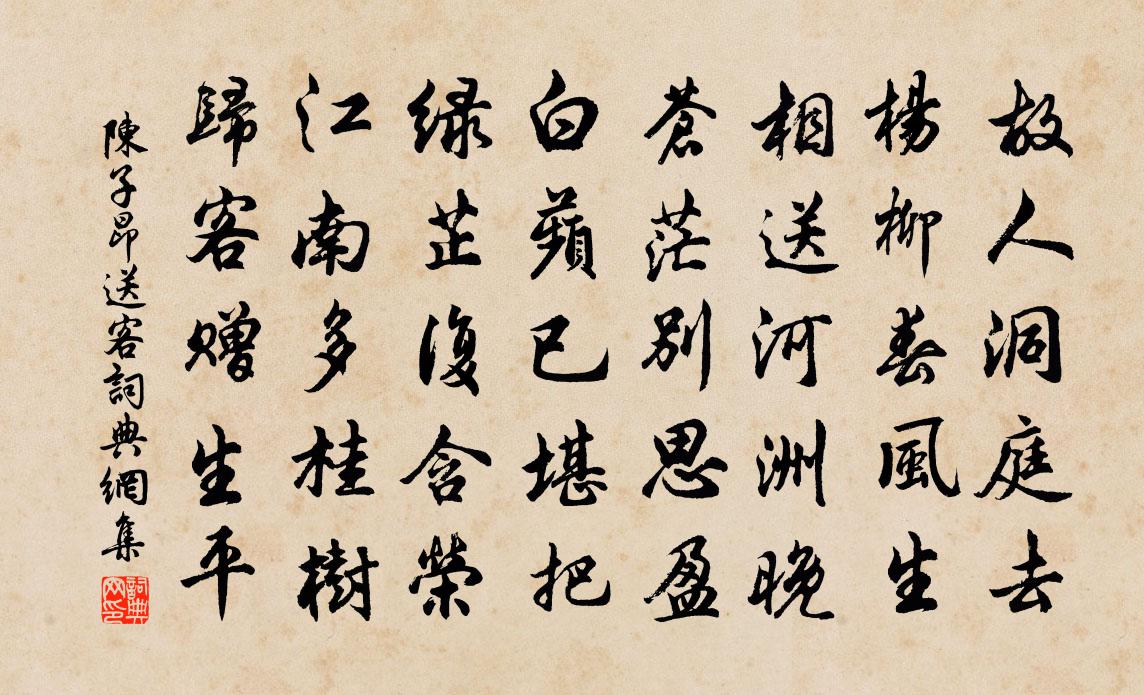 故人洞庭去
楊柳春風生
相送河洲晚
蒼茫別思盈
白蘋已堪把
綠芷復含榮
江南多桂樹
歸客贈生平
陳子昂送客詞典網集
詞典网印